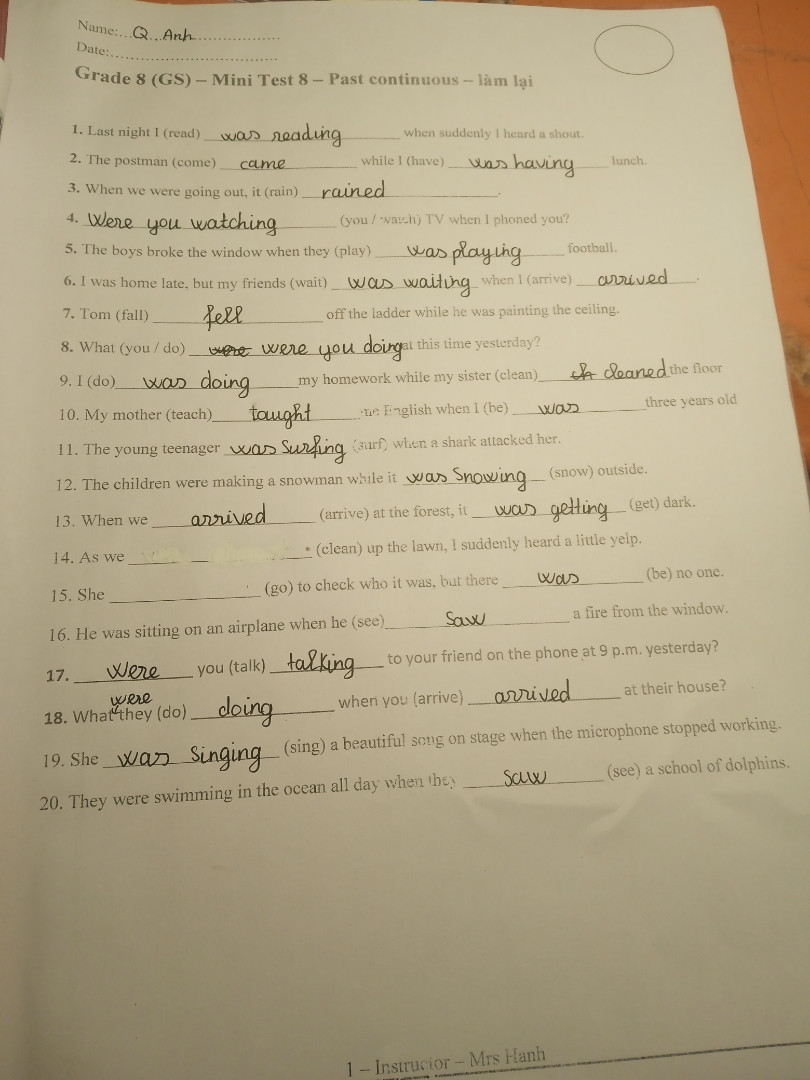 Name:...Q..Anh..................
Date:......................................
Grade 8 (GS) – Mini Test 8 – Past continuous – làm lại
1. Last night I (read) was reading when suddenly I heard a shout.
2. The postman (come) came while I (have) was having lunch.
3. When we were going out, it (rain) rained.
4. Were you watching (you / watch) TV when I phoned you?
5. The boys broke the window when they (play) was playing football.
6. I was home late, but my friends (wait) was waiting when I (arrive) arrived.
7. Tom (fall) fell off the ladder while he was painting the ceiling.
8. What (you / do) were you doing at this time yesterday?
9. I (do) was doing my homework while my sister (clean) cleaned the floor
10. My mother (teach) taught me English when I (be) was three years old
11. The young teenager was surfing (surf) when a shark attacked her.
12. The children were making a snowman while it was Snowing (snow) outside.
13. When we arrived (arrive) at the forest, it was getting (get) dark.
14. As we ____________ (clean) up the lawn, I suddenly heard a little yelp.
15. She ____________ (go) to check who it was, but there was (be) no one.
16. He was sitting on an airplane when he (see) Saw a fire from the window.
17. Were you (talk) talking to your friend on the phone at 9 p.m. yesterday?
18. What were they (do) doing when you (arrive) arrived at their house?
19. She was Singing (sing) a beautiful song on stage when the microphone stopped working.
20. They were swimming in the ocean all day when they saw (see) a school of dolphins.
1 – Instructor – Mrs Hanh